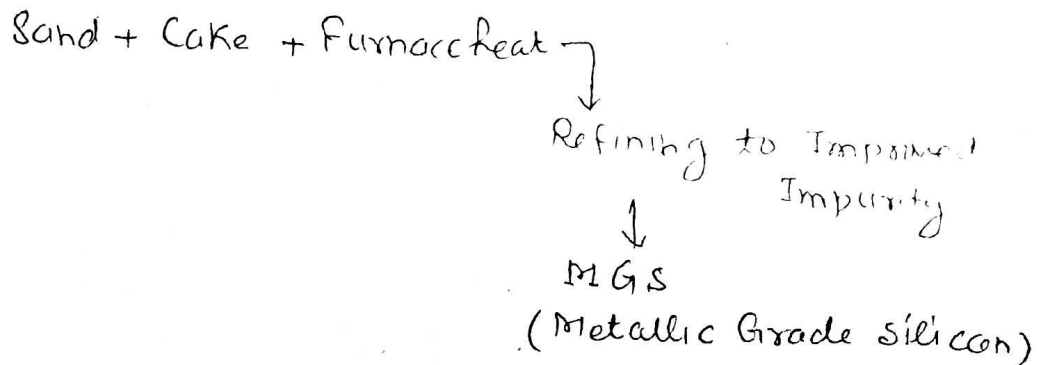 Sand + Cake + Furnacc heat
Refining to
Impurity
MGS
(Metallic Grade Silicon)